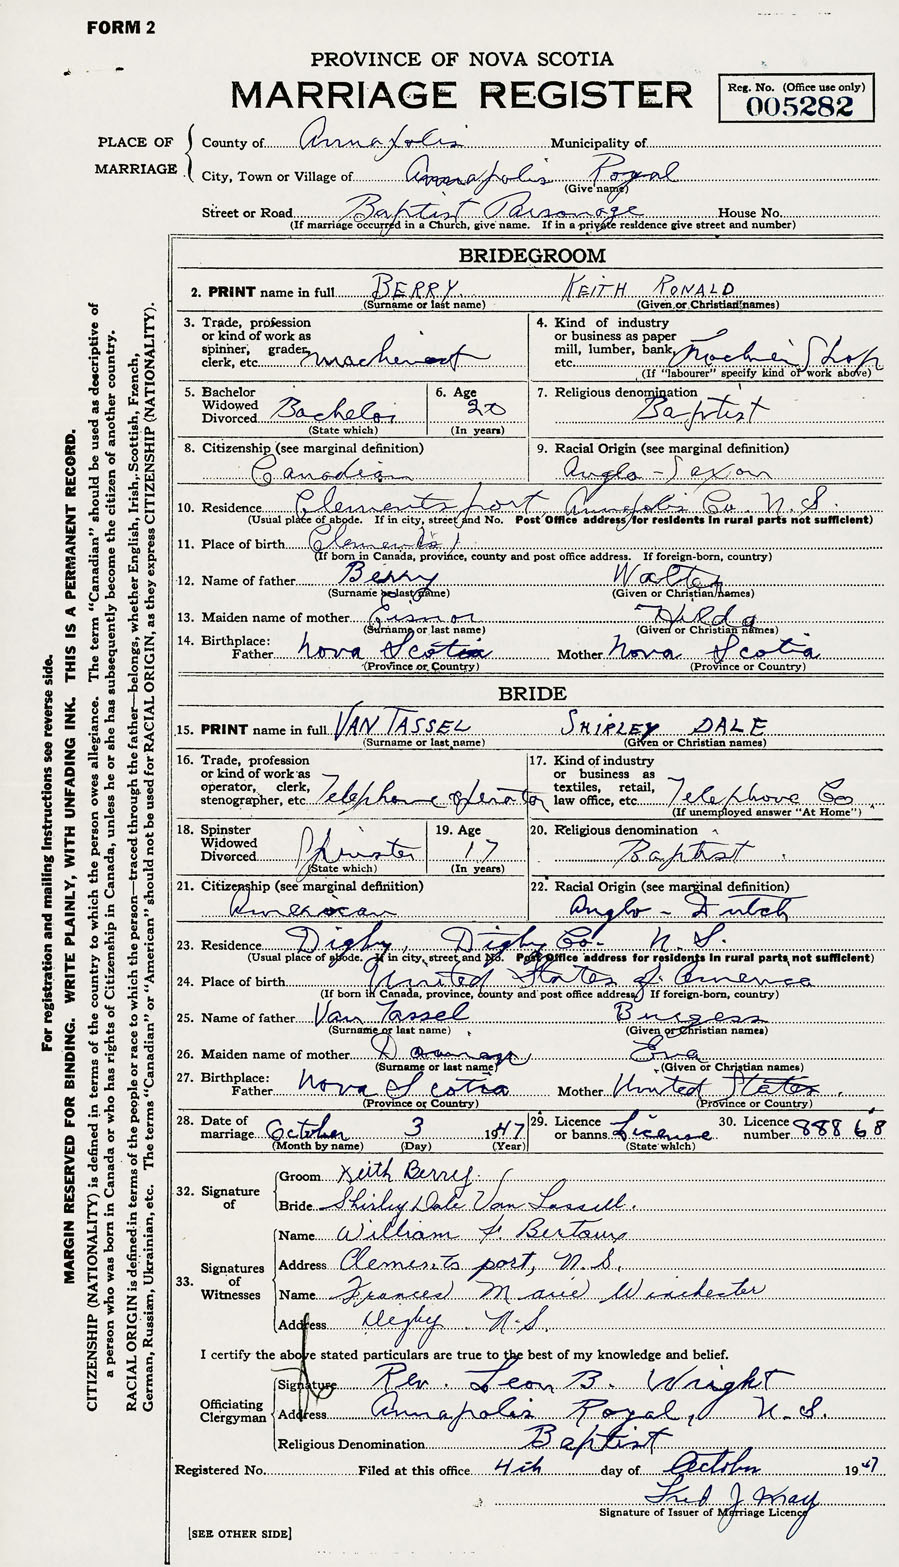 FORM 2
PROVINCE OF NOVA SCOTIA
MARRIAGE REGISTER
Reg. No. (Office use only)
005282
PLACE OF MARRIAGE
County of Annapolis Municipality of
City, Town or Village of Annapolis Royal
(Give name)
Street or Road Baptist Parsonage House No.
(If marriage occurred in a Church, give name. If in a private residence give street and number)
BRIDEGROOM
2. PRINT name in full BERRY KEITH RONALD
(Surname or last name) (Given or Christian names)
3. Trade, profession or kind of work as spinner, grader, clerk, etc. machinest
4. Kind of industry or business as paper mill, lumber, bank, etc. Machine Shop
(If "labourer" specify kind of work above)
5. Bachelor Widowed Divorced Bachelor
(State which)
6. Age 20
(In years)
7. Religious denomination
Baptist
8. Citizenship (see marginal definition)
Canadian
9. Racial Origin (see marginal definition)
Anglo-Sexon
10. Residence Clementsport, Annapolis Co. N.S.
(Usual place of abode. If in city, street and No. Post Office address for residents in rural parts not sufficient)
11. Place of birth
(If born in Canada, province, county and post office address. If foreign-born, country)
12. Name of father Berry Walter
(Surname or last name) (Given or Christian names)
13. Maiden name of mother Hilda
(Surname or last name) (Given or Christian names)
14. Birthplace:
Father Nova Scotia Mother Nova Scotia
(Province or Country) (Province or Country)
BRIDE
15. PRINT name in full VAN TASSEL SHIRLEY DALE
(Surname or last name) (Given or Christian names)
16. Trade, profession or kind of work as operator, clerk, stenographer, etc. Telephone operator
17. Kind of industry or business as textiles, retail, law office, etc. Telephone Co
(If unemployed answer "At Home")
18. Spinster Widowed Divorced Spinster
(State which)
19. Age 17
(In years)
20. Religious denomination
Baptist
21. Citizenship (see marginal definition)
American
22. Racial Origin (see marginal definition)
Anglo-Dutch
23. Residence Digby, Digby Co. N.S.
(Usual place of abode. If in city, street and No. Post Office address for residents in rural parts not sufficient)
24. Place of birth United States of America
(If born in Canada, province, county and post office address) If foreign-born, country)
25. Name of father Van Tassel Burgess
(Surname or last name) (Given or Christian names)
26. Maiden name of mother Eva
(Surname or last name) (Given or Christian names)
27. Birthplace:
Father Nova Scotia Mother United States
(Province or Country) (Province or Country)
28. Date of marriage October 3 1947
(Month by name) (Day) (Year)
29. Licence or banns License
(State which)
30. Licence number 88868
32. Signature of
Groom Keith Berry
Bride Shirley Dale Van Tassell.
33. Signatures of Witnesses
Name William F.
Address Clementsport, N.S.
Name Frances Marie Winchester
Address Digby N.S.
I certify the above stated particulars are true to the best of my knowledge and belief.
Officiating Clergyman
Signature Rev. Leon B. Wright
Address Annapolis Royal, N.S.
Religious Denomination Baptist
Registered No. Filed at this office 4th day of October 1947
Fred J May
Signature of Issuer of Marriage Licence
[SEE OTHER SIDE]
For registration and mailing instructions see reverse side.
MARGIN RESERVED FOR BINDING. WRITE PLAINLY, WITH UNFADING INK. THIS IS A PERMANENT RECORD.
CITIZENSHIP (NATIONALITY) is defined in terms of the country to which the person owes allegiance. The term "Canadian" should be used as descriptive of
a person who was born in Canada or who has rights of Citizenship in Canada, unless he or she has subsequently become the citizen of another country.
RACIAL ORIGIN is defined in terms of the people or race to which the person—traced through the father—belongs, whether English, Irish, Scottish, French,
German, Russian, Ukrainian, etc. The terms "Canadian" or "American" should not be used for RACIAL ORIGIN, as they express CITIZENSHIP (NATIONALITY).